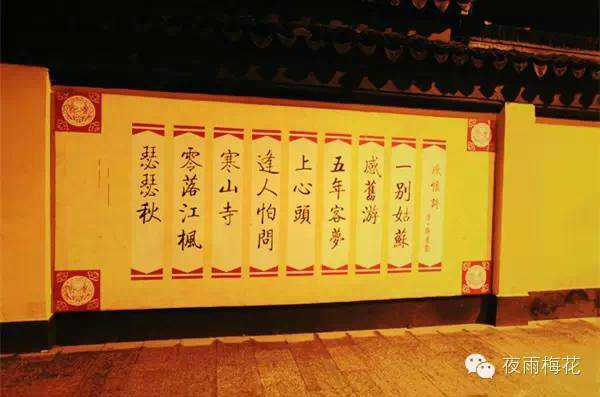 一别姑蘇
感舊游
五年客夢
上心頭
逢人怕問
寒山寺
零落江楓
瑟瑟秋
夜雨梅花